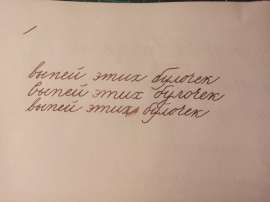 выпей этих булочек
выпей этих булочек
выпей этих булочек